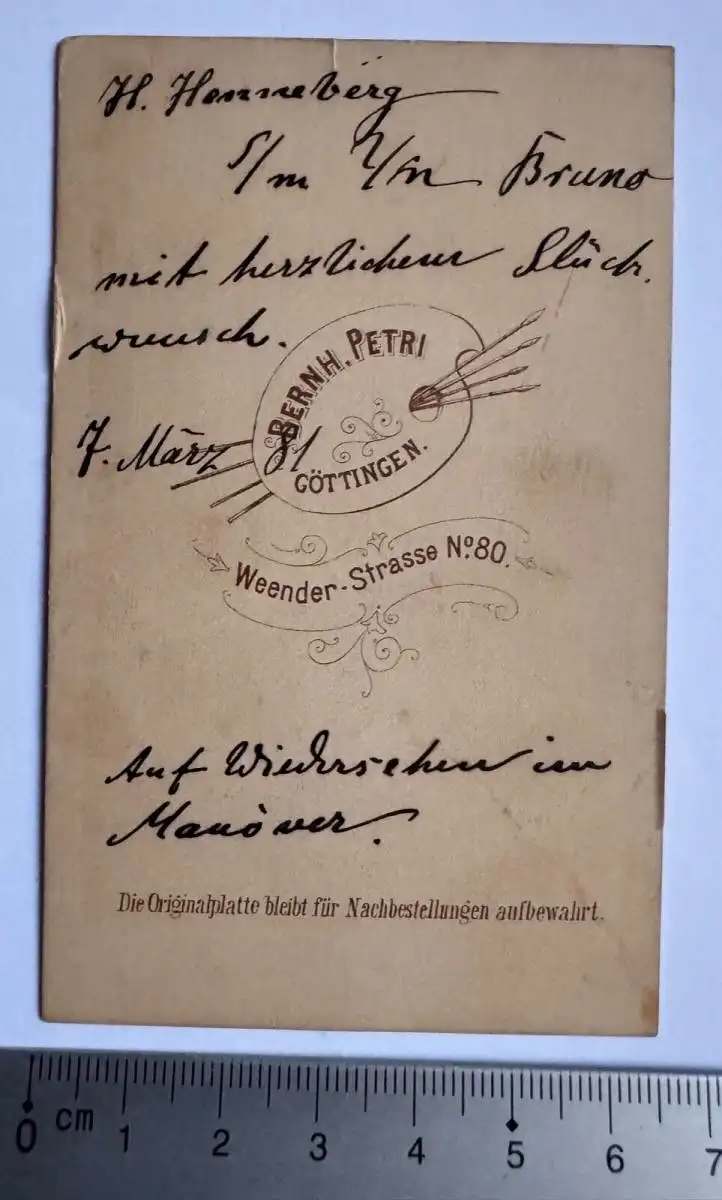 H. Henneberg
s/m l/n Bruno
mit herzlichem Glück.
wunsch.
BERNH. PETRI
7. März 81
GÖTTINGEN.
Weender-Strasse No. 80.
Auf Wiedersehen im
Manöver.
Die Originalplatte bleibt für Nachbestellungen aufbewahrt.
cm
0 1 2 3 4 5 6 7